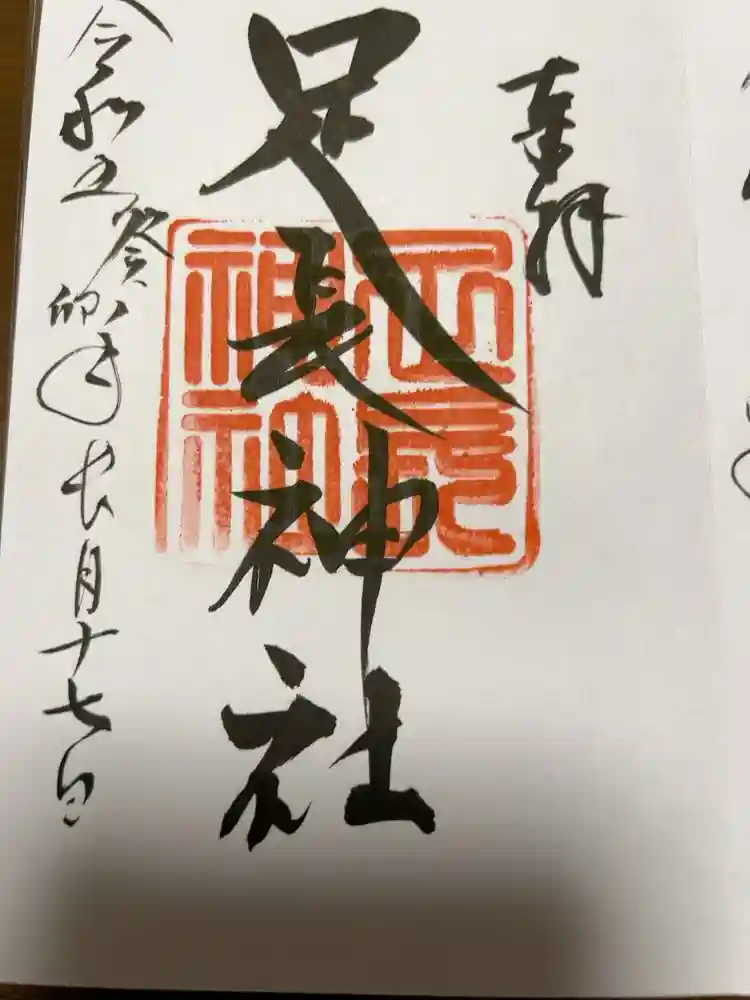 奉拝
足長神社
足長神社
令和五癸卯年長月十七日